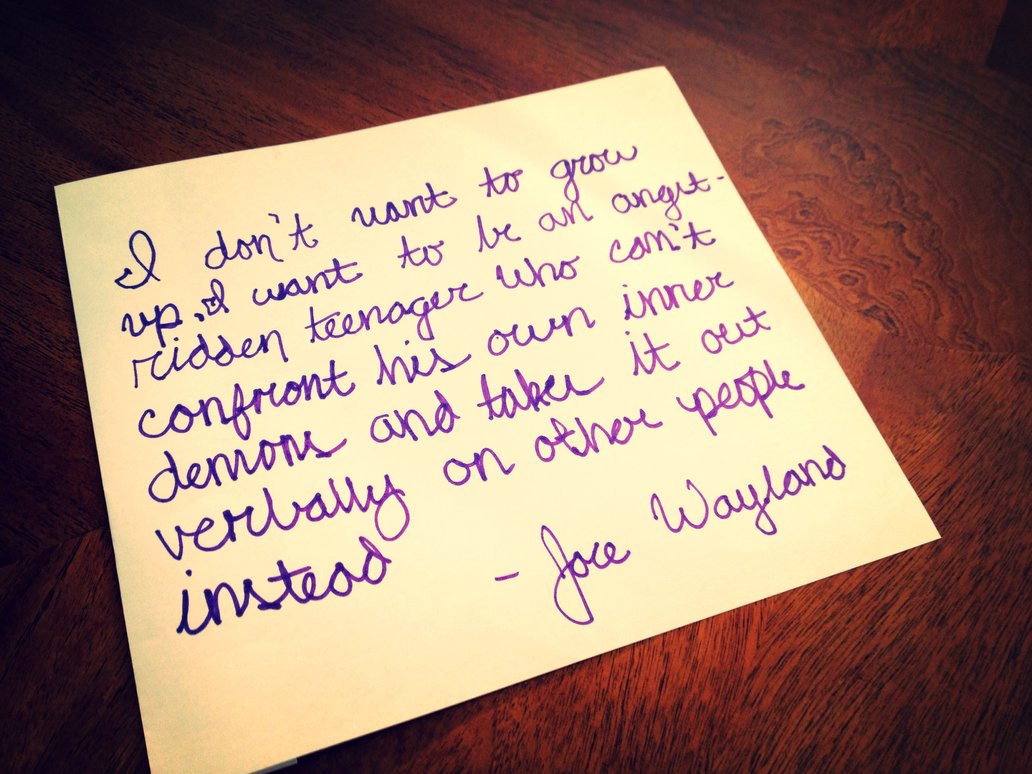 I don't want to grow
up, I want to be an angst-
ridden teenager who can't
confront his own inner
demons and takes it out
verbally on other people
instead
- Jace Wayland